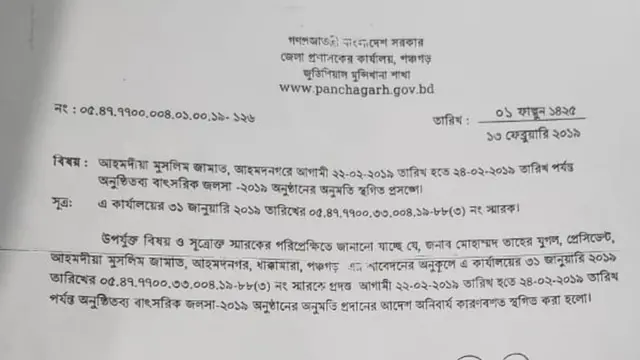 গণপ্রজাতন্ত্রী বাংলাদেশ সরকার
জেলা প্রশাসকের কার্যালয়, পঞ্চগড়
জুডিশিয়াল মুন্সিখানা শাখা
www.panchagarh.gov.bd
নং : ০৫.৪৭.৭৭০০.০০৪.০১.০০.১৯- ১২৬
তারিখ : ০১ ফাল্গুন ১৪২৫
১৩ ফেব্রুয়ারি ২০১৯
বিষয় : আহমদীয়া মুসলিম জামাত, আহমদনগরে আগামী ২২-০২-২০১৯ তারিখ হতে ২৪-০২-২০১৯ তারিখ পর্যন্ত
অনুষ্ঠিতব্য বাৎসরিক জলসা -২০১৯ অনুষ্ঠানের অনুমতি স্থগিত প্রসঙ্গে।
সূত্র: এ কার্যালয়ের ৩১ জানুয়ারি ২০১৯ তারিখের ০৫.৪৭.৭৭০০.৩৩.০০৪.১৯-৮৮(৩) নং স্মারক।
উপর্যুক্ত বিষয় ও সূত্রোক্ত স্মারকের পরিপ্রেক্ষিতে জানানো যাচ্ছে যে, জনাব মোহাম্মদ তাহের যুগল, প্রেসিডেন্ট,
আহমদীয়া মুসলিম জামাত, আহমদনগর, ধাক্কামারা, পঞ্চগড় এর আবেদনের অনুকূলে এ কার্যালয়ের ৩১ জানুয়ারি ২০১৯
তারিখের ০৫.৪৭.৭৭০০.৩৩.০০৪.১৯-৮৮(৩) নং স্মারকে প্রদত্ত আগামী ২২-০২-২০১৯ তারিখ হতে ২৪-০২-২০১৯ তারিখ
পর্যন্ত অনুষ্ঠিতব্য বাৎসরিক জলসা-২০১৯ অনুষ্ঠানের অনুমতি প্রদানের আদেশ অনিবার্য কারণবশত স্থগিত করা হলো।